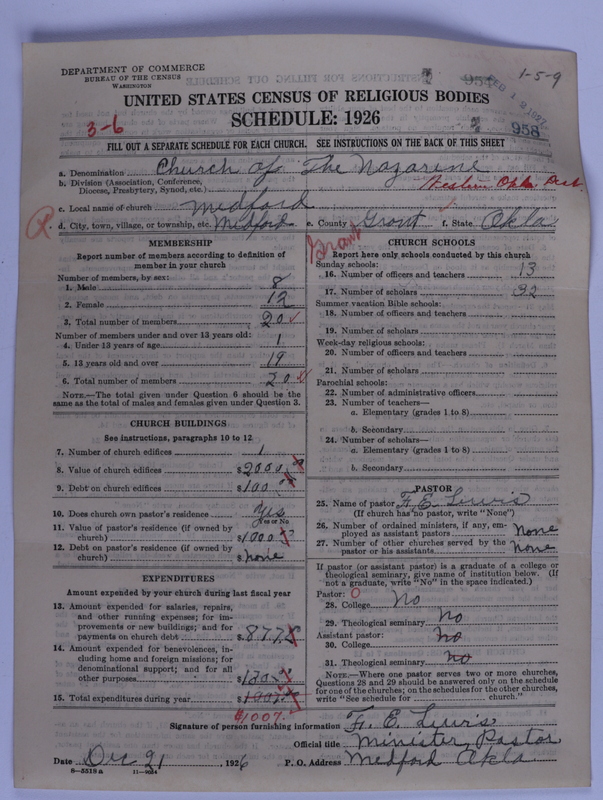 DEPARTMENT OF COMMERCE
BUREAU OF THE CENSUS
WASHINGTON
954
1-5-9
FEB 12 1927
UNITED STATES CENSUS OF RELIGIOUS BODIES
3-6
SCHEDULE: 1926
958
FILL OUT A SEPARATE SCHEDULE FOR EACH CHURCH. SEE INSTRUCTIONS ON THE BACK OF THIS SHEET
a. Denomination Church of The Nazarine
b. Division (Association, Conference, Diocese, Presbytery, Synod, etc.) Western Okla. Dist.
c. Local name of church Medford
d. City, town, village, or township, etc. Medford e. County Grant f. State Okla.
Grant
MEMBERSHIP
Report number of members according to definition of member in your church
Number of members, by sex:
1. Male 8
2. Female 12
3. Total number of members 20
Number of members under and over 13 years old:
4. Under 13 years of age 1
5. 13 years old and over 19
6. Total number of members 20
NOTE.—The total given under Question 6 should be the same as the total of males and females given under Question 3.
CHURCH BUILDINGS
See instructions, paragraphs 10 to 12
7. Number of church edifices 1
8. Value of church edifices $2000
9. Debt on church edifices $100
10. Does church own pastor's residence? Yes
Yes or No
11. Value of pastor's residence (if owned by church) $1000
12. Debt on pastor's residence (if owned by church) $none
EXPENDITURES
Amount expended by your church during last fiscal year
13. Amount expended for salaries, repairs, and other running expenses; for improvements or new buildings; and for payments on church debt $877
14. Amount expended for benevolences, including home and foreign missions; for denominational support; and for all other purposes $130
15. Total expenditures during year
$1007.
CHURCH SCHOOLS
Report here only schools conducted by this church
Sunday schools:
16. Number of officers and teachers 13
17. Number of scholars 32
Summer vacation Bible schools:
18. Number of officers and teachers
19. Number of scholars
Week-day religious schools:
20. Number of officers and teachers
21. Number of scholars
Parochial schools:
22. Number of administrative officers
23. Number of teachers—
a. Elementary (grades 1 to 8)
b. Secondary
24. Number of scholars—
a. Elementary (grades 1 to 8)
b. Secondary
PASTOR
25. Name of pastor F. E. Lewis
(If church has no pastor, write "None")
26. Number of ordained ministers, if any, employed as assistant pastors None
27. Number of other churches served by the pastor or his assistants None
If pastor (or assistant pastor) is a graduate of a college or theological seminary, give name of institution below. (If not a graduate, write "No" in the space indicated.)
Pastor: 0
28. College No
29. Theological seminary No
Assistant pastor:
30. College no
31. Theological seminary no
NOTE.—Where one pastor serves two or more churches, Questions 28 and 29 should be answered only on the schedule for one of the churches; on the schedules for the other churches, write "See schedule for church."
Signature of person furnishing information F. E. Lewis
Official title Minister, Pastor
Date Dec 21, 1926 P. O. Address Medford Okla
8-5518 a 11-9024